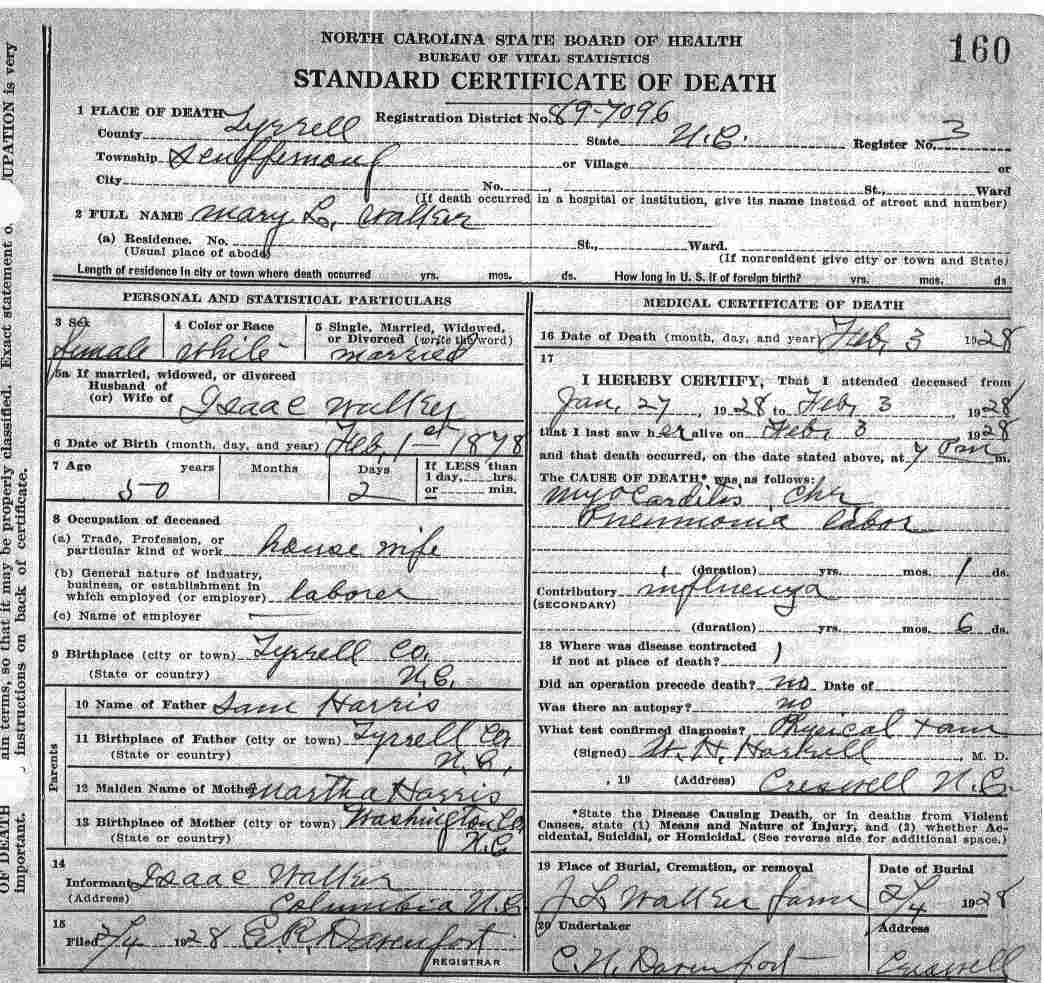 160
NORTH CAROLINA STATE BOARD OF HEALTH
BUREAU OF VITAL STATISTICS
STANDARD CERTIFICATE OF DEATH
1 PLACE OF DEATH Registration District No. 89-7096
County Tyrrell State N.C. Register No. 3
Township Scuppernong or Village or
City No. , St., Ward
(If death occurred in a hospital or institution, give its name instead of street and number)
2 FULL NAME Mary L. Walker
(a) Residence. No. St., Ward.
(Usual place of abode) (If nonresident give city or town and State)
Length of residence in city or town where death occurred yrs. mos. ds. How long in U. S. if of foreign birth? yrs. mos. ds
PERSONAL AND STATISTICAL PARTICULARS
3 Sex 4 Color or Race 5 Single, Married, Widowed,
or Divorced (write the word)
female white married
5a If married, widowed, or divorced
Husband of
(or) Wife of Isaac Walker
6 Date of Birth (month, day, and year) Feb, 1st 1878
7 Age years Months Days If LESS than
1 day, hrs.
or min.
50 2
8 Occupation of deceased
(a) Trade, Profession, or
particular kind of work house wife
(b) General nature of industry,
business, or establishment in
which employed (or employer) laborer
(c) Name of employer
9 Birthplace (city or town) Tyrrell Co.
(State or country) N.C.
Parents
10 Name of Father Sam Harris
11 Birthplace of Father (city or town) Tyrrell Co
(State or country) N.C.
12 Maiden Name of Mother Martha Harris
13 Birthplace of Mother (city or town) Washington Co
(State or country) N.C
14
Informant Isaac Walker
(Address) Columbia N.C
15
Filed 2/4 1928 E. R. Davenport
REGISTRAR
MEDICAL CERTIFICATE OF DEATH
16 Date of Death (month, day, and year) Feb, 3 1928
17
I HEREBY CERTIFY, That I attended deceased from
Jan, 27, 1928 to Feb, 3 1928
that I last saw her alive on Feb, 3 1928
and that death occurred, on the date stated above, at 7 Pm m.
The CAUSE OF DEATH* was as follows:
Myocarditis, Chr,
Pneumonia labor
(duration) yrs. mos. 1 ds.
Contributory influenza
(SECONDARY)
(duration) yrs. mos. 6 ds.
18 Where was disease contracted
if not at place of death?
Did an operation precede death? no Date of
Was there an autopsy? no
What test confirmed diagnosis? Physical Exam
(Signed) W. H. , M. D.
, 19 (Address) Creswell N.C.
*State the Disease Causing Death, or in deaths from Violent
Causes, state (1) Means and Nature of Injury, and (2) whether Ac-
cidental, Suicidal, or Homicidal. (See reverse side for additional space.)
19 Place of Burial, Cremation, or removal Date of Burial
J. L. Walker farm 2/4 1928
20 Undertaker Address
C. N. Davenport Creswell
UPATION is very
Exact statement o
ain terms, so that it may be properly classified.
instructions on back of certificate.
OF DEATH
important.